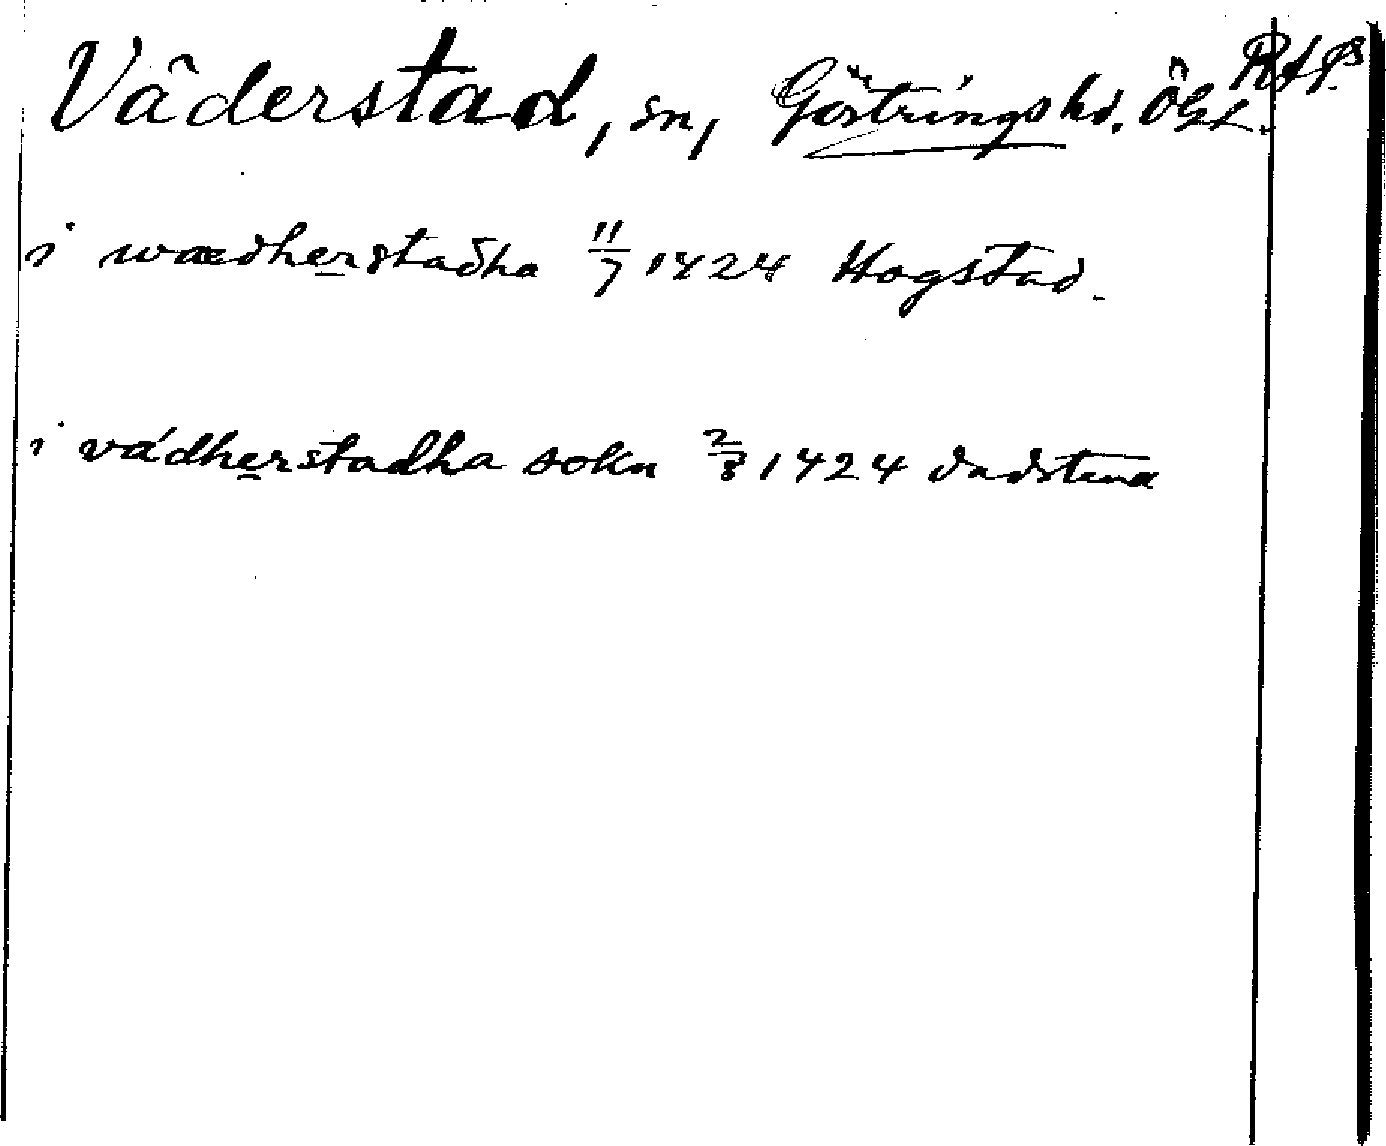 Väderstad, sn, Göstrings hd. Ögl. RAP
i wædherstadha 11/7 1424 Hogstad.
i vádherstadha sokn 2/8 1424 Vadstena